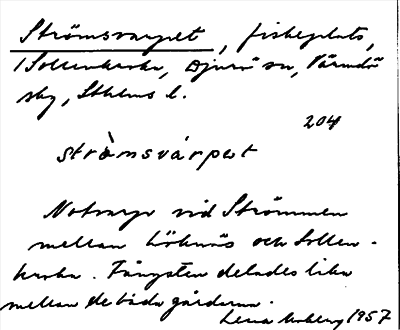 Strömsvarpet, fiskeplats,
/Sollenkroka, Djurö sn, Värmdö
skg, Sthlms l.
204
strö̀msvárpet
Notvarp vid Strömmen
mellan Löknäs och Sollen-
kroka. Fångsten delades lika
mellan de båda gårdarna.
Lena Moberg 1957